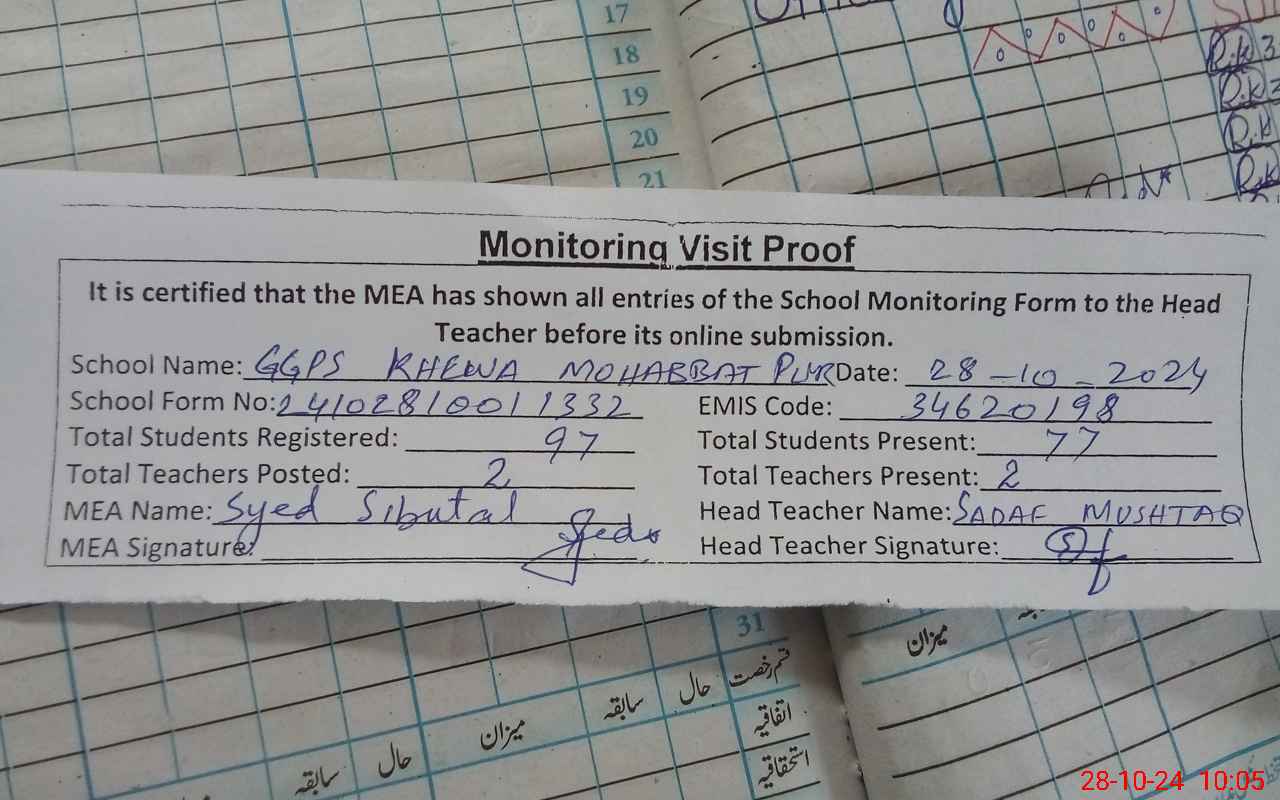 17
18
19
20
21
R.K 3
R.K 2
R.K
R.K
Monitoring Visit Proof
It is certified that the MEA has shown all entries of the School Monitoring Form to the Head
Teacher before its online submission.
School Name: GGPS KHEWA MOHABBAT PUR Date: 28-10-2024
School Form No: 2410281001 1332 EMIS Code: 34620198
Total Students Registered: 97 Total Students Present: 77
Total Teachers Posted: 2 Total Teachers Present: 2
MEA Name: Syed Sibutal Head Teacher Name: SADAF MUSHTAQ
MEA Signature: Head Teacher Signature:
31
میزان
قسم رخصت
حال
سابقہ
میزان
حال
سابقہ
اتفاقیہ
استحقاقیہ
28-10-24 10:05